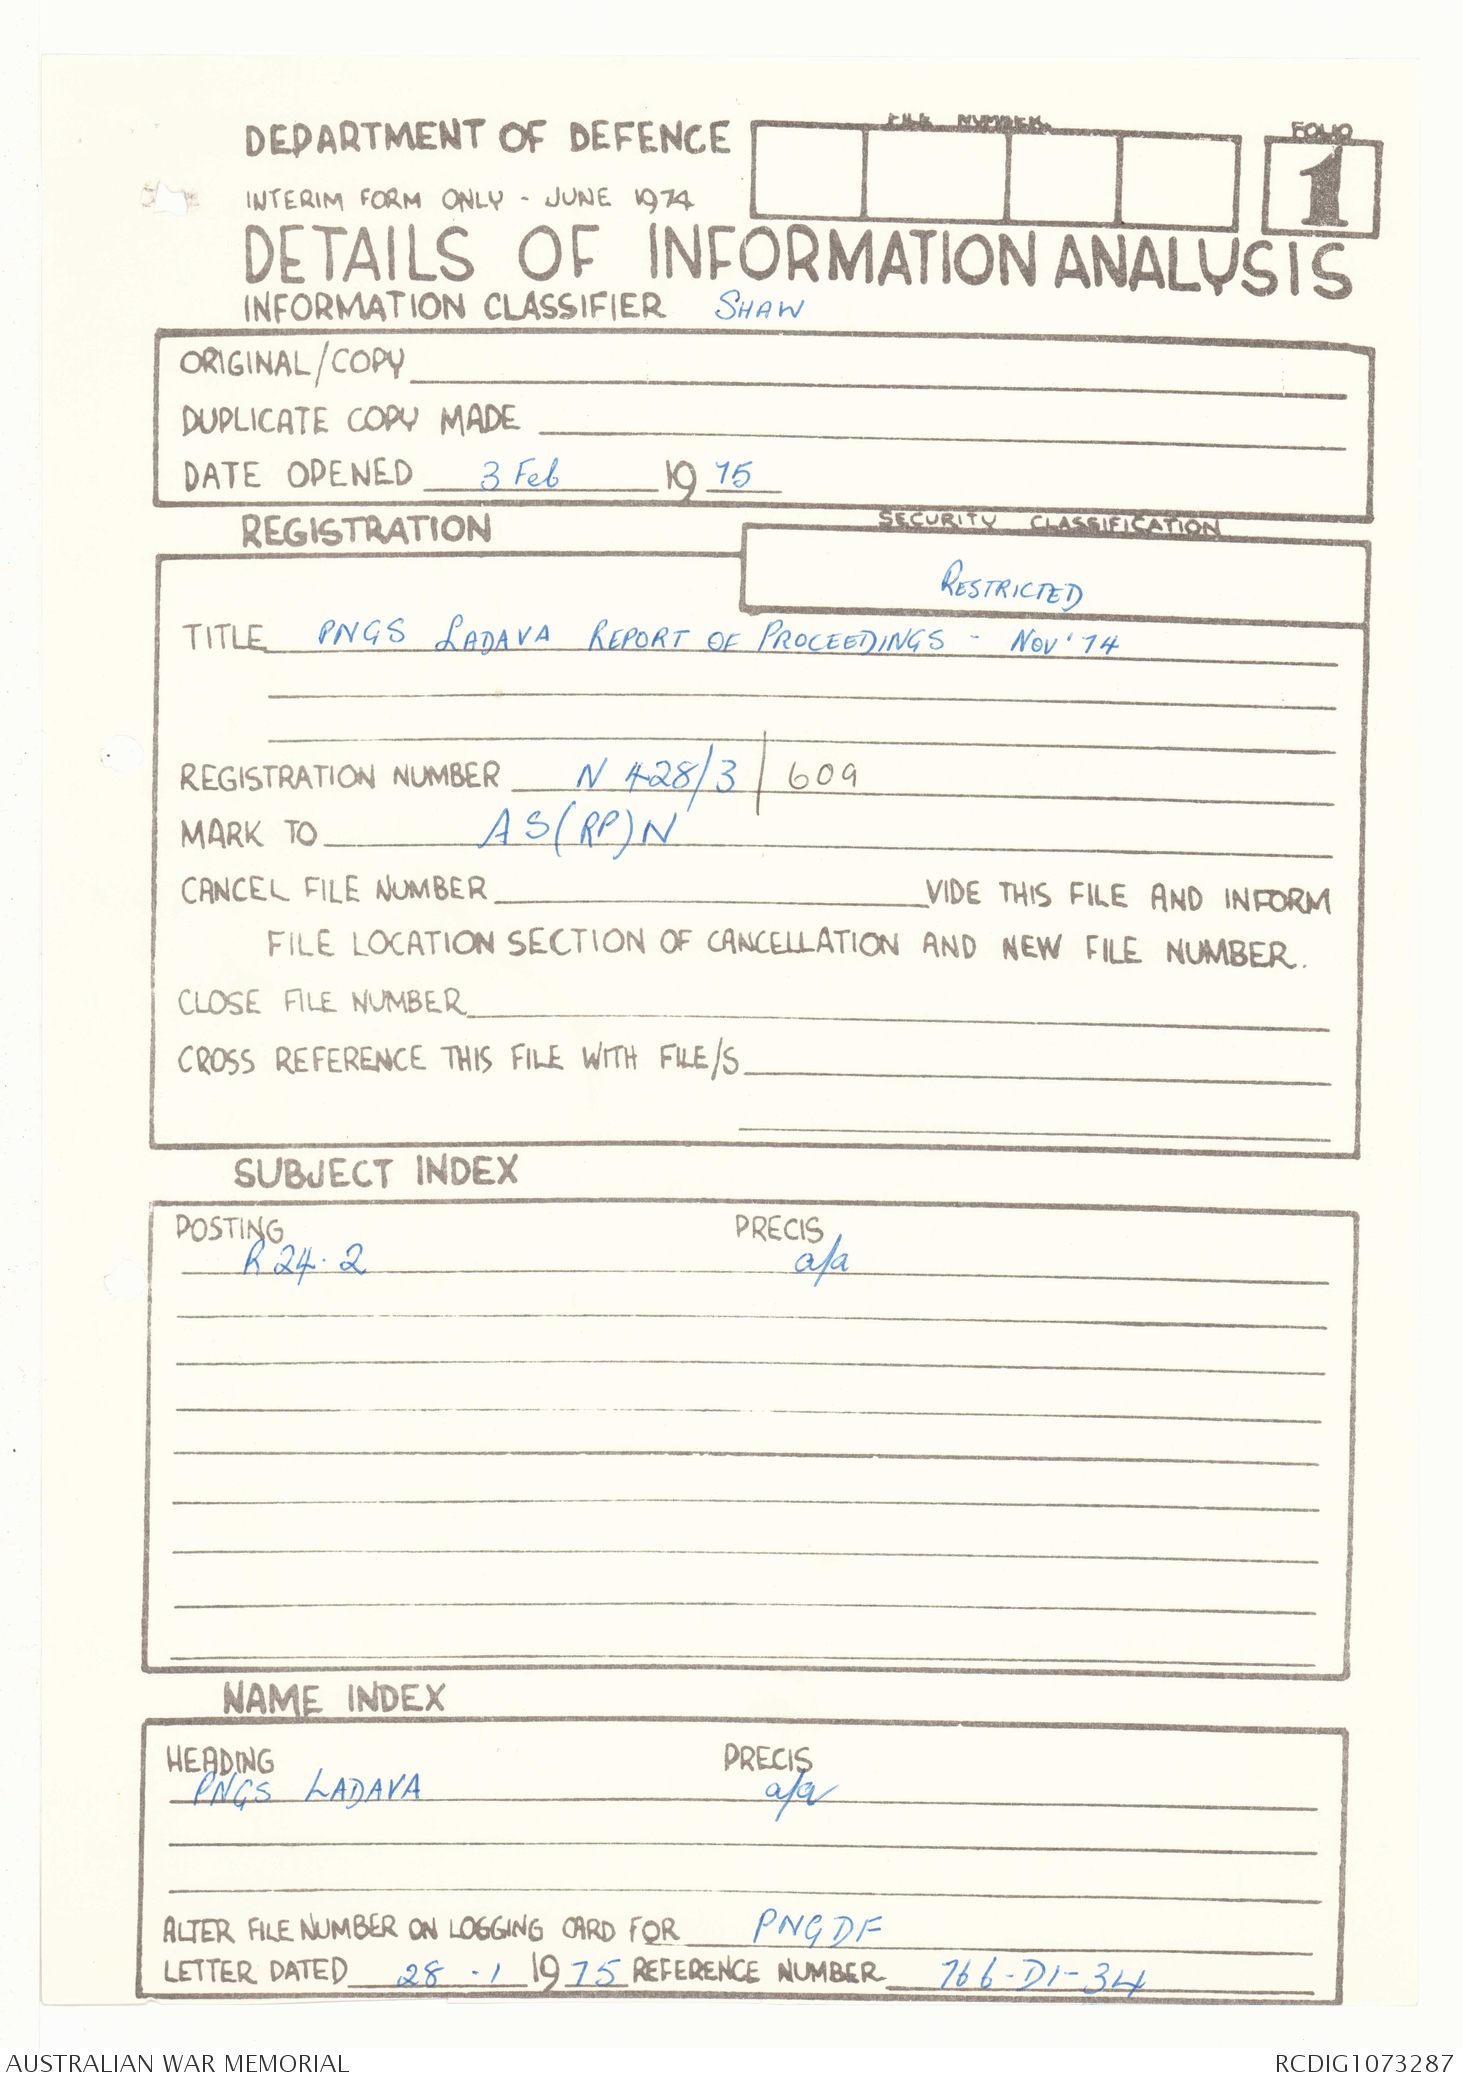 DEPARTMENT OF DEFENCE
FILE NUMBER
FOLIO
1
INTERIM FORM ONLY - JUNE 1974
DETAILS OF INFORMATION ANALYSIS
INFORMATION CLASSIFIER SHAW
ORIGINAL/COPY
DUPLICATE COPY MADE
DATE OPENED 3 Feb 1975
REGISTRATION
SECURITY CLASSIFICATION
RESTRICTED
TITLE PNGS LADAVA REPORT OF PROCEEDINGS - NOV '74
REGISTRATION NUMBER N 428/3/609
MARK TO AS(RP)N
CANCEL FILE NUMBER VIDE THIS FILE AND INFORM
FILE LOCATION SECTION OF CANCELLATION AND NEW FILE NUMBER.
CLOSE FILE NUMBER
CROSS REFERENCE THIS FILE WITH FILE/S
SUBJECT INDEX
POSTING PRECIS
R 24.2 a/a
NAME INDEX
HEADING PRECIS
PNGS LADAVA a/a
ALTER FILE NUMBER ON LOGGING CARD FOR PNGDF
LETTER DATED 28 -1 1975 REFERENCE NUMBER 766-D1-34
AUSTRALIAN WAR MEMORIAL RCDIG1073287